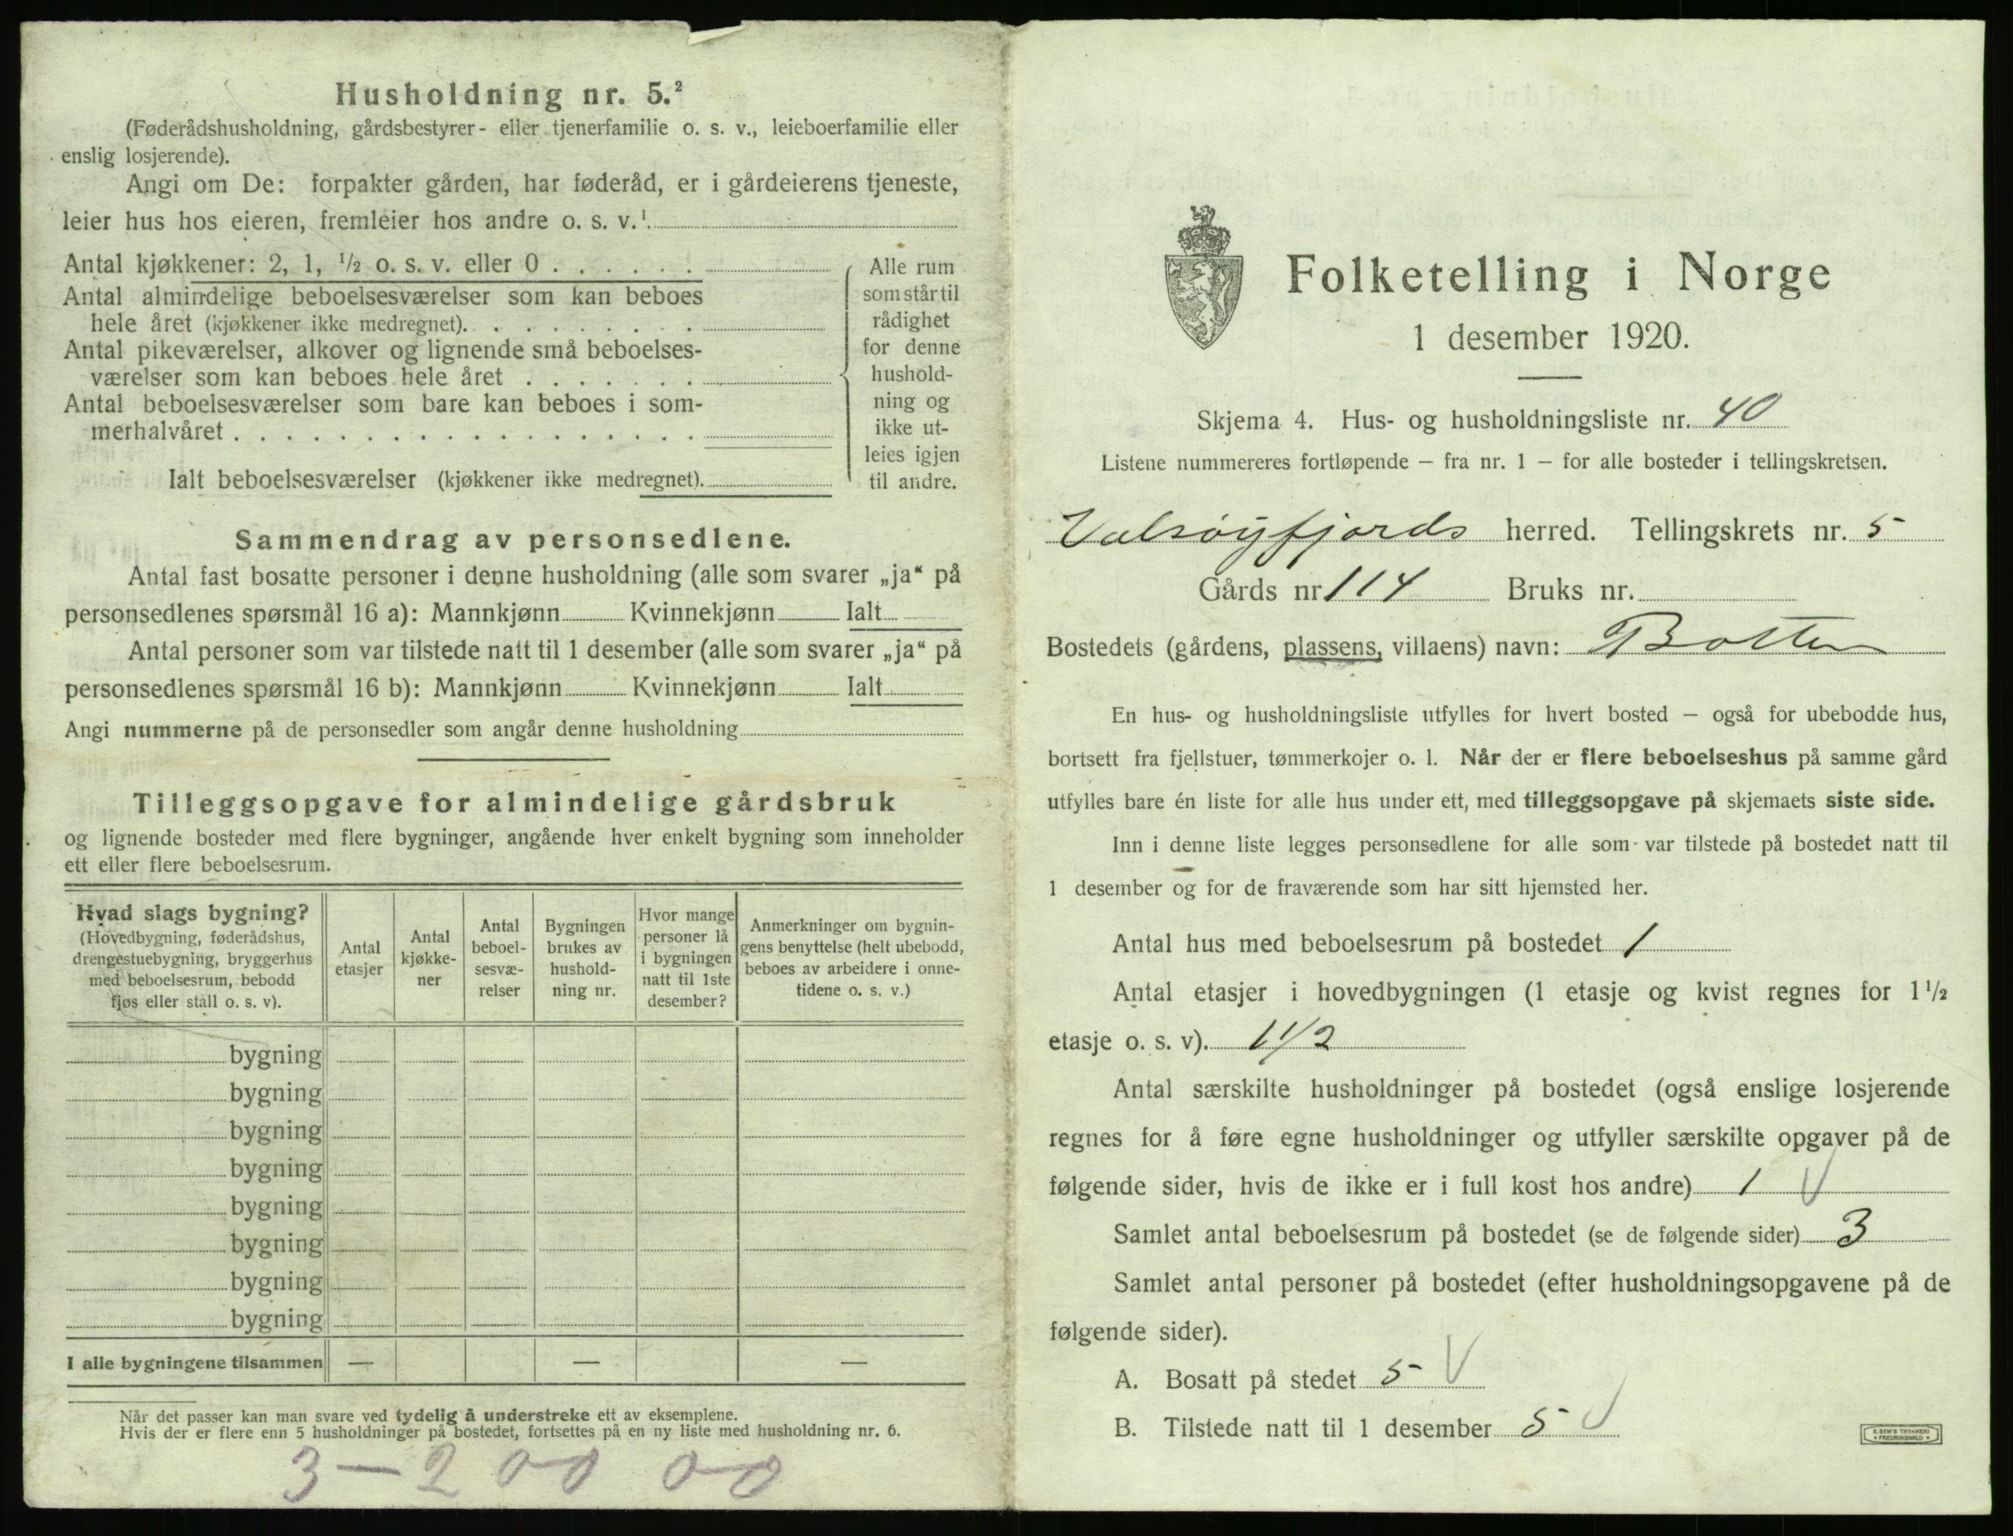 Husholdning nr. 5.²
(Føderådshusholdning, gårdsbestyrer- eller tjenerfamilie o. s. v., leieboerfamilie eller
enslig losjerende).
Angi om De: forpakter gården, har føderåd, er i gårdeierens tjeneste,
leier hus hos eieren, fremleier hos andre o. s. v.¹
Antal kjøkkener: 2, 1, ½ o. s. v. eller 0 . . . . . .
Antal almindelige beboelsesværelser som kan beboes
hele året (kjøkkener ikke medregnet). . . . . . . . .
Antal pikeværelser, alkover og lignende små beboelses-
værelser som kan beboes hele året . . . . . . .
Antal beboelsesværelser som bare kan beboes i som-
merhalvåret . . . . . . . . . . . . . . . . . .
Ialt beboelsesværelser (kjøkkener ikke medregnet).
Alle rum
som står til
rådighet
for denne
hushold-
ning og
ikke ut-
leies igjen
til andre.
Sammendrag av personsedlene.
Antal fast bosatte personer i denne husholdning (alle som svarer „ja“ på
personsedlenes spørsmål 16 a): Mannkjønn Kvinnekjønn Ialt
Antal personer som var tilstede natt til 1 desember (alle som svarer „ja“ på
personsedlenes spørsmål 16 b): Mannkjønn Kvinnekjønn Ialt
Angi nummerne på de personsedler som angår denne husholdning
Tilleggsopgave for almindelige gårdsbruk
og lignende bosteder med flere bygninger, angående hver enkelt bygning som inneholder
ett eller flere beboelsesrum.
Hvad slags bygning?
(Hovedbygning, føderådshus,
drengestuebygning, bryggerhus
med beboelsesrum, bebodd
fjøs eller stall o. s. v).
Antal
etasjer
Antal
kjøkke-
ner
Antal
beboel-
sesvæ-
relser
Bygningen
brukes av
hushold-
ning nr.
Hvor mange
personer lå
i bygningen
natt til 1ste
desember?
Anmerkninger om bygnin-
gens benyttelse (helt ubebodd,
beboes av arbeidere i onne-
tidene o. s. v.)
bygning
bygning
bygning
bygning
bygning
bygning
bygning
bygning
I alle bygningene tilsammen — — —
Når det passer kan man svare ved tydelig å understreke ett av eksemplene.
Hvis der er flere enn 5 husholdninger på bostedet, fortsettes på en ny liste med husholdning nr. 6.
3 — 2 00 0-0
Folketelling i Norge
1 desember 1920.
Skjema 4. Hus- og husholdningsliste nr. 40
Listene nummereres fortløpende – fra nr. 1 – for alle bosteder i tellingskretsen.
Valsøyfjords herred. Tellingskrets nr. 5
Gårds nr. 114 Bruks nr.
Bostedets (gårdens, plassens, villaens) navn: Botten
En hus- og husholdningsliste utfylles for hvert bosted – også for ubebodde hus,
bortsett fra fjellstuer, tømmerkojer o. l. Når der er flere beboelseshus på samme gård
utfylles bare én liste for alle hus under ett, med tilleggsopgave på skjemaets siste side.
Inn i denne liste legges personsedlene for alle som var tilstede på bostedet natt til
1 desember og for de fraværende som har sitt hjemsted her.
Antal hus med beboelsesrum på bostedet 1
Antal etasjer i hovedbygningen (1 etasje og kvist regnes for 1½
etasje o. s. v). 1 1/2
Antal særskilte husholdninger på bostedet (også enslige losjerende
regnes for å føre egne husholdninger og utfyller særskilte opgaver på de
følgende sider, hvis de ikke er i full kost hos andre) 1 V
Samlet antal beboelsesrum på bostedet (se de følgende sider) 3
Samlet antal personer på bostedet (efter husholdningsopgavene på de
følgende sider).
A. Bosatt på stedet 5 V
B. Tilstede natt til 1 desember 5 V
E. SEM'S TRYKKERI
FREDRIKSHALD